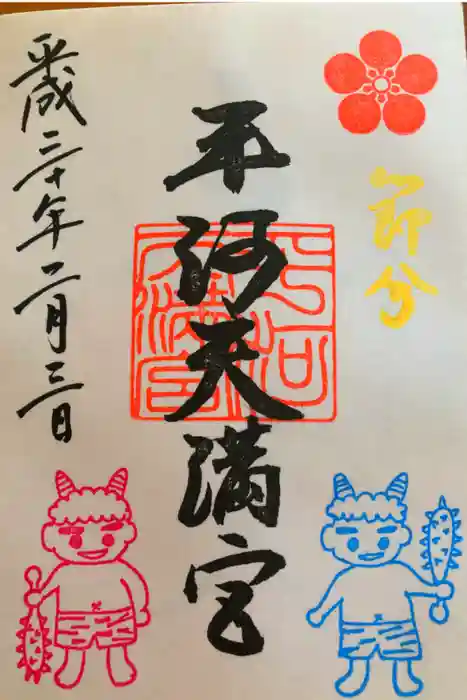 節分
平河天満宮
平成三十年二月三日